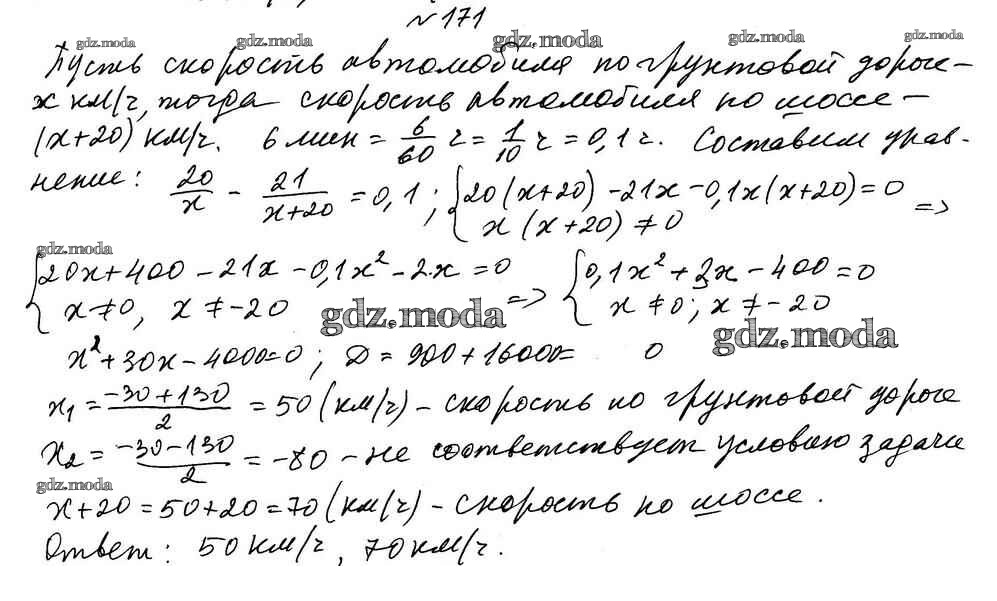 №171
gdz.moda gdz.moda gdz.moda gdz.moda gdz.moda
Пусть скорость автомобиля по грунтовой дороге –
x км/ч, тогда скорость автомобиля по шоссе –
(x+20) км/ч. 6 мин = 6/60 ч = 1/10 ч = 0,1 ч. Составим урав-
нение: 20/x - 21/(x+20) = 0,1; { 20(x+20) - 21x - 0,1x(x+20) = 0
x(x+20) ≠ 0 =>
gdz.moda
{ 20x+400 - 21x - 0,1x² - 2x = 0 => { 0,1x² + 3x - 400 = 0
x ≠ 0, x ≠ -20 x ≠ 0; x ≠ -20
gdz.moda gdz.moda
x² + 30x - 4000 = 0; D = 900 + 16000 = 0
x₁ = (-30+130)/2 = 50 (км/ч) – скорость по грунтовой дороге
x₂ = (-30-130)/2 = -80 – не соответствует условию задачи
gdz.moda
x+20 = 50+20 = 70 (км/ч) – скорость по шоссе.
Ответ: 50 км/ч, 70 км/ч.